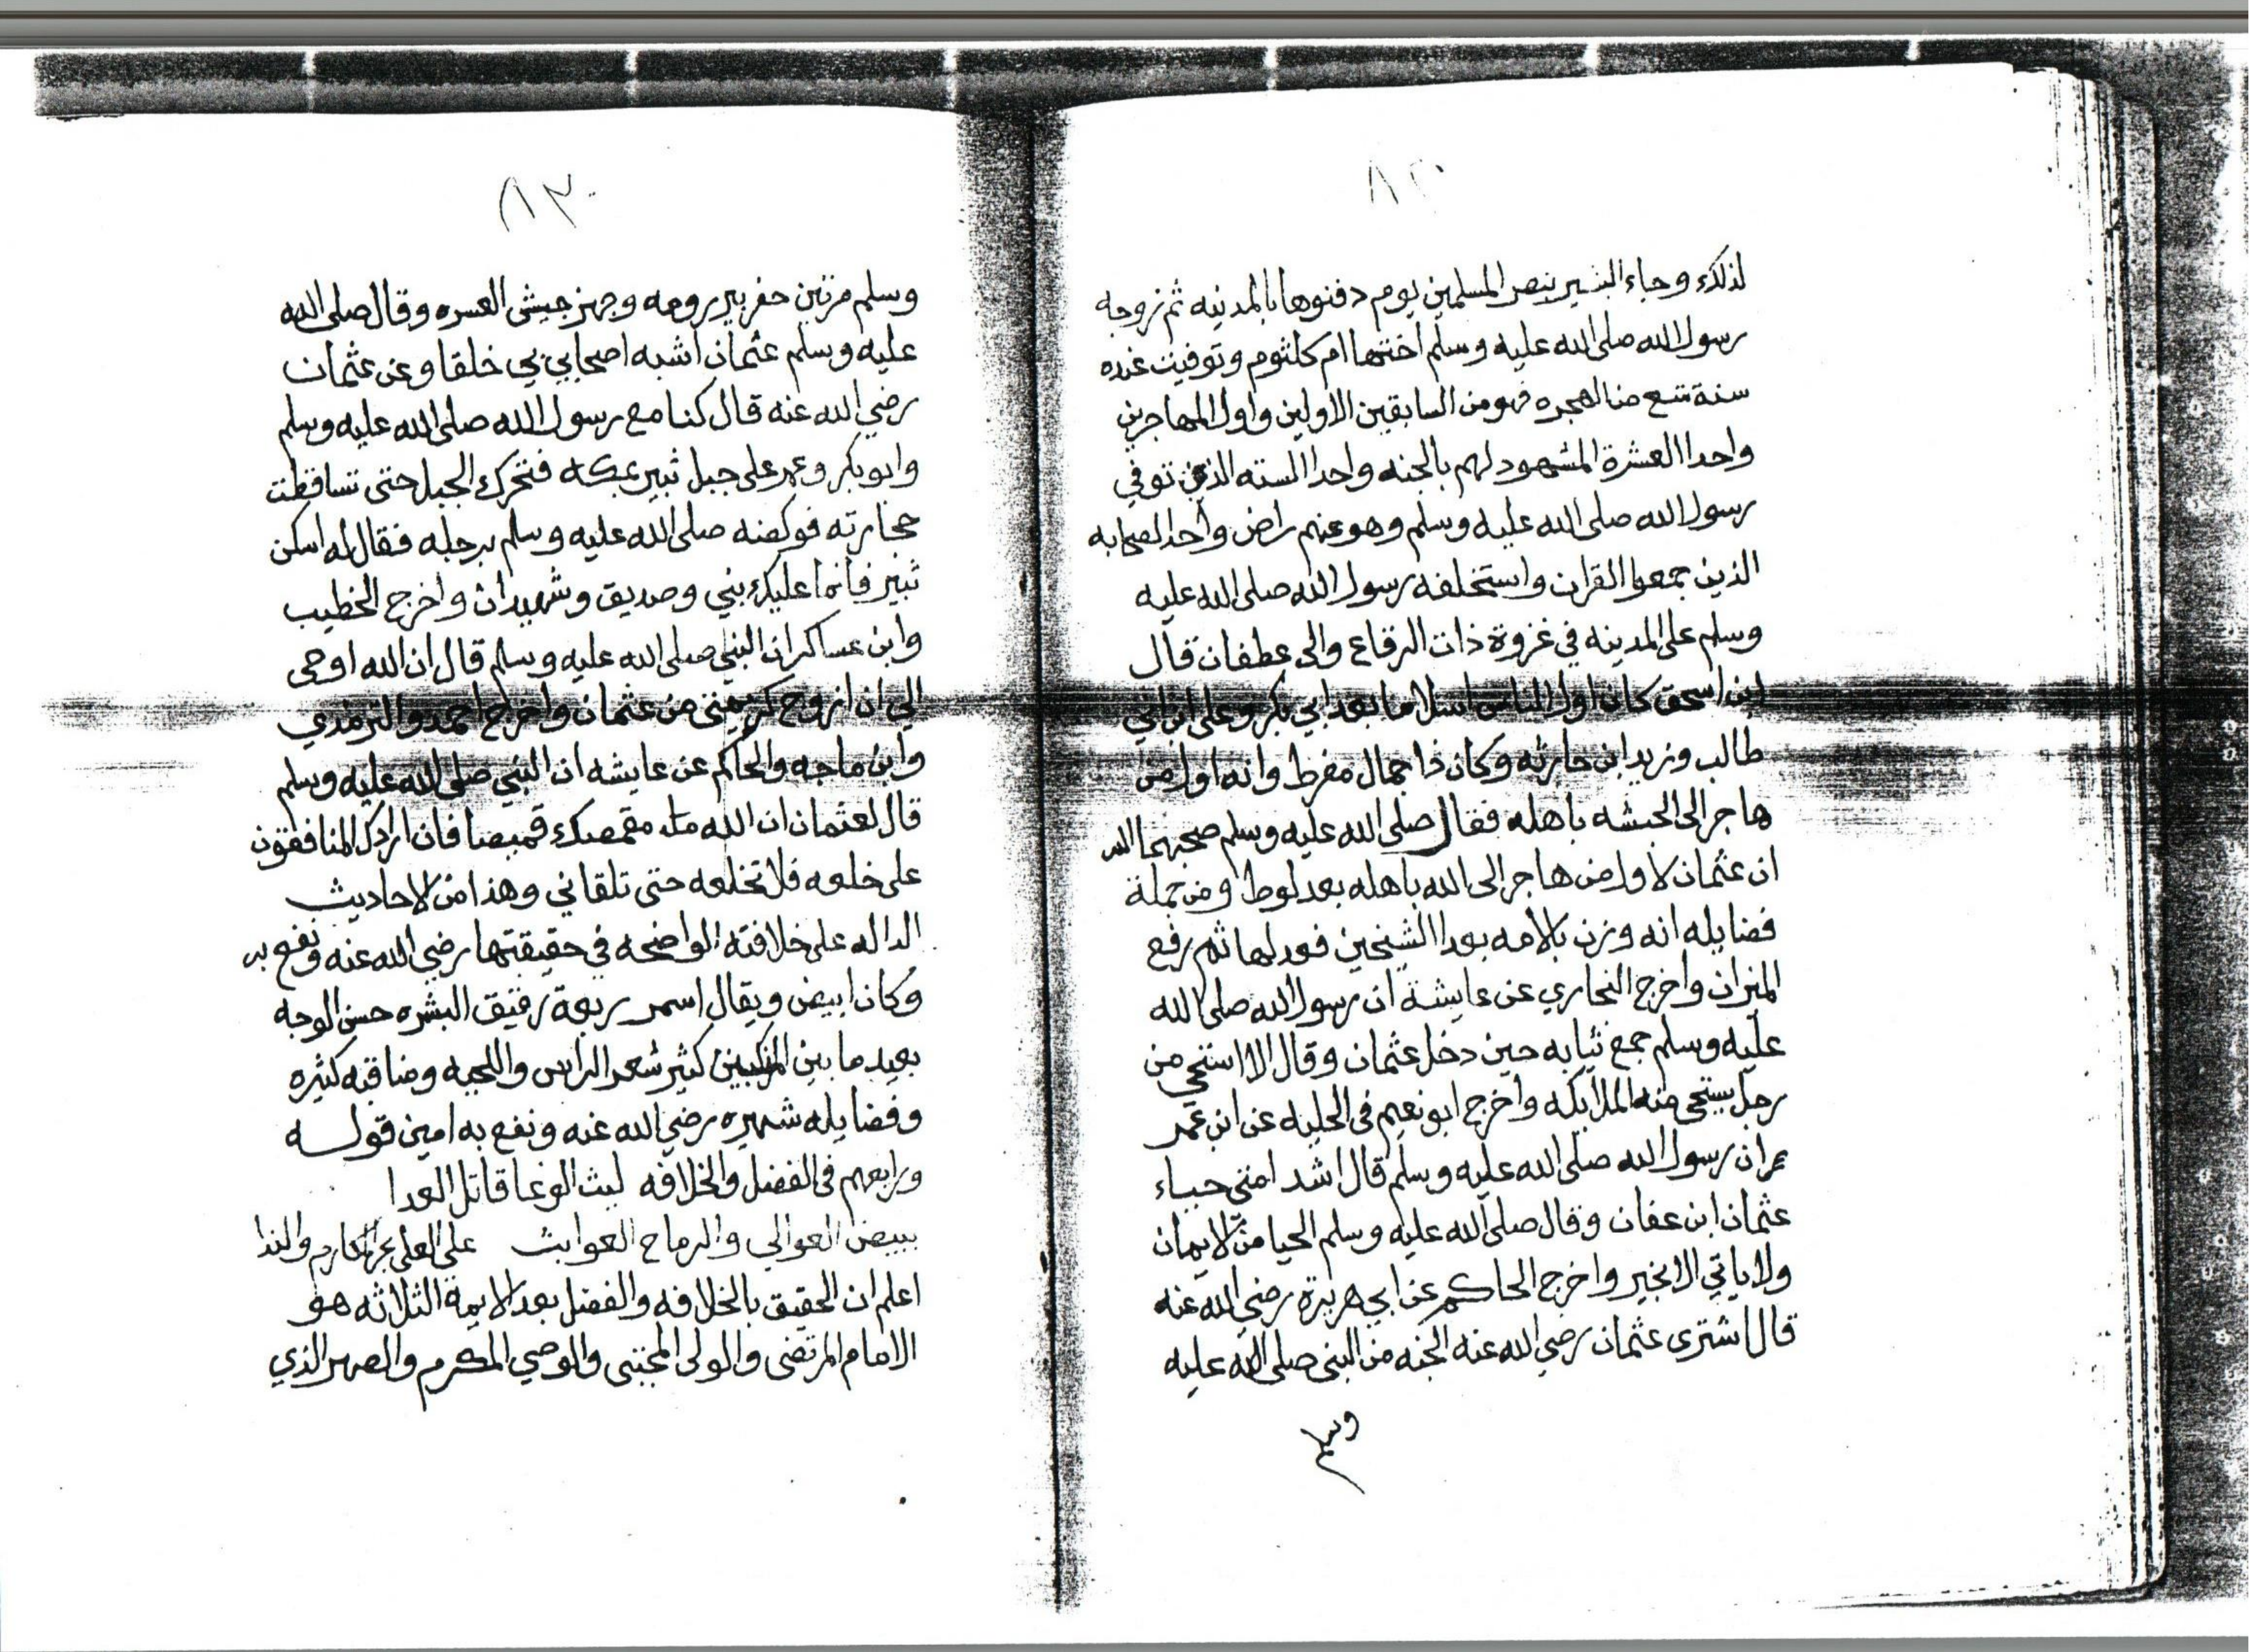 ٨٢
لذلك وجاء البشير بنصر المسلمين يوم دفنوها بالمدينه ثم زوجه
رسول الله صلى الله عليه وسلم اختها ام كلثوم وتوفيت عنده
سنة تسع من الهجره فهو من السابقين الاولين واول المهاجرين
واحد العشرة المشهود لهم بالجنه واحد السته الذين توفي
رسول الله صلى الله عليه وسلم وهو عنهم راض واحد الصحابه
الذين جمعوا القران واستخلفه رسول الله صلى الله عليه
وسلم على المدينه في غزوة ذات الرقاع والى عطفان قال
ابن اسحق كان اول الناس اسلاما بعد ابي بكر وعلى ابن ابي
طالب وزيد ابن حارثه وكان ذا جمال مفرط وانه اول من
هاجر الى الحبشه باهله فقال صلى الله عليه وسلم صحبهما الله
ان عثمان لاول من هاجر الى الله باهله بعد لوط ومن جملة
فضايله انه وزن بالامه بعد الشيخين فعدلها ثم رفع
الميزان واخرج البخاري عن عايشة ان رسول الله صلى الله
عليه وسلم جمع ثيابه حين دخل عثمان وقال الا استحي من
رجل يستحى منه الملايكه واخرج ابو نعيم فى الحليه عن ابن عمر
ان رسول الله صلى الله عليه وسلم قال اشد امتى حياء
عثمان ابن عفان وقال صلى الله عليه وسلم الحيا من الايمان
ولا ياتي الا بخير واخرج الحاكم عن ابي هريرة رضي الله عنه
قال اشترى عثمان رضي الله عنه الجنه من النبى صلى الله عليه
وسلم
٨٣
وسلم مرتين حفر بير رومه وجهز جيش العسره وقال صلى الله
عليه وسلم عثمان اشبه اصحابي بي خلقا وعن عثمان
رضي الله عنه قال كنا مع رسول الله صلى الله عليه وسلم
وابو بكر وعمر على جبل ثبير بمكه فتحرك الجبل حتى تساقطت
حجارته فوكضه صلى الله عليه وسلم برجله فقال له اسكن
ثبير فانما عليك نبي وصديق وشهيدان واخرج الخطيب
وابن عساكر ان النبي صلى الله عليه وسلم قال ان الله اوحى
الي ان ازوج كريمتى من عثمان واخراج احمد والترمذي
وابن ماجه والحاكم عن عايشه ان النبي صلى الله عليه وسلم
قال لعثمان ان الله مقمصك قميصا فان ارادك المنافقون
على خلعه فلا تخلعه حتى تلقاني وهذا من الاحاديث
الداله على خلافته الواضحه في حقيقتها رضي الله عنه ونفع به
وكان ابيض ويقال اسمر ربعة رقيق البشره حسن الوجه
بعيد ما بين المنكبين كثير شعر الراس واللحيه ومناقبه كثيره
وفضايله شهيره رضي الله عنه ونفع به امين قوله
ورابعهم فى الفضل والخلافه ليث الوغا قاتل العدا
ببيض العوالي والرماح العوابث على العلى بحر المكارم والندا
اعلم ان الحقيق بالخلافه والفضل بعد الايمة الثلاثه هو
الامام المرتضى والولى المجتبى والوصي المكرم والصهر الذي